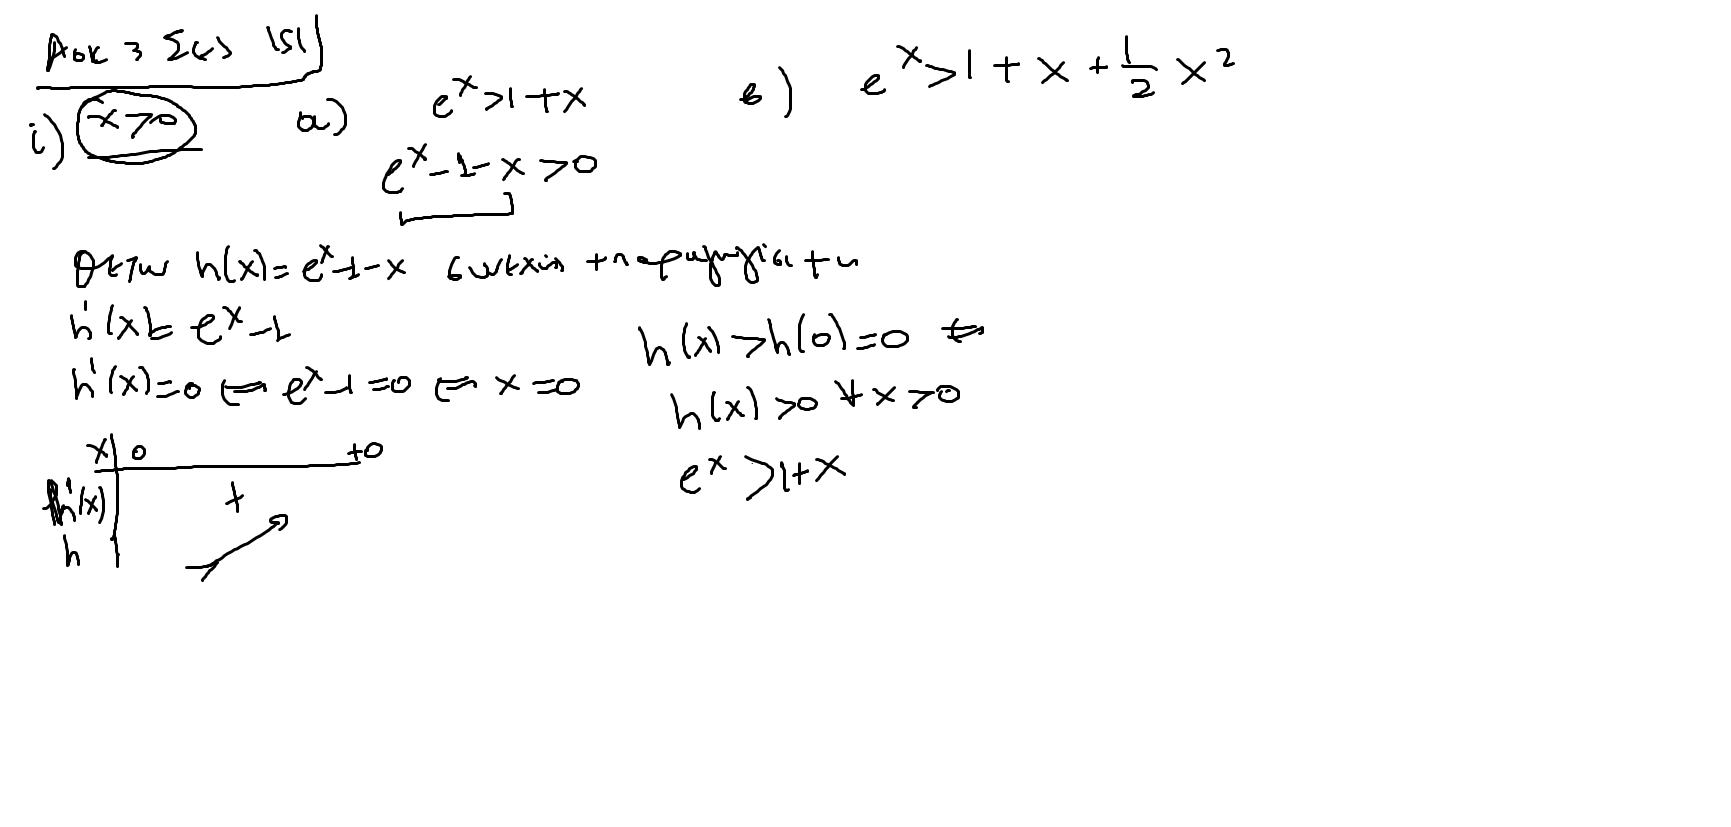 Ασκ 3 Σελ 151
i) x>0 α) e^x>1+x
e^x-1-x>0
Θέτω h(x)=e^x-1-x συνεχής +παραγωγίσιμη
h'(x)=e^x-1
h'(x)=0 ⇔ e^x-1=0 ⇔ x=0
x 0 +∞
h'(x) +
h
h(x)>h(0)=0 ⇔
h(x)>0 ∀x>0
e^x>1+x
β) e^x>1+x+\frac{1}{2}x^2